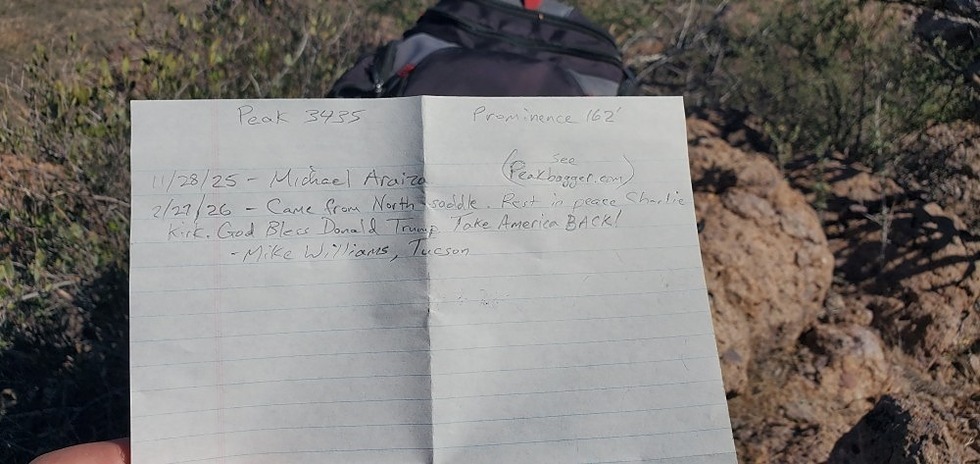 Peak 3435 Prominence 162'
(see Peakbagger.com)
11/28/25 - Michael Araiza
2/27/26 - Came from North saddle. Rest in peace Charlie
Kirk. God Bless Donald Trump Take America BACK!
-Mike Williams, Tucson